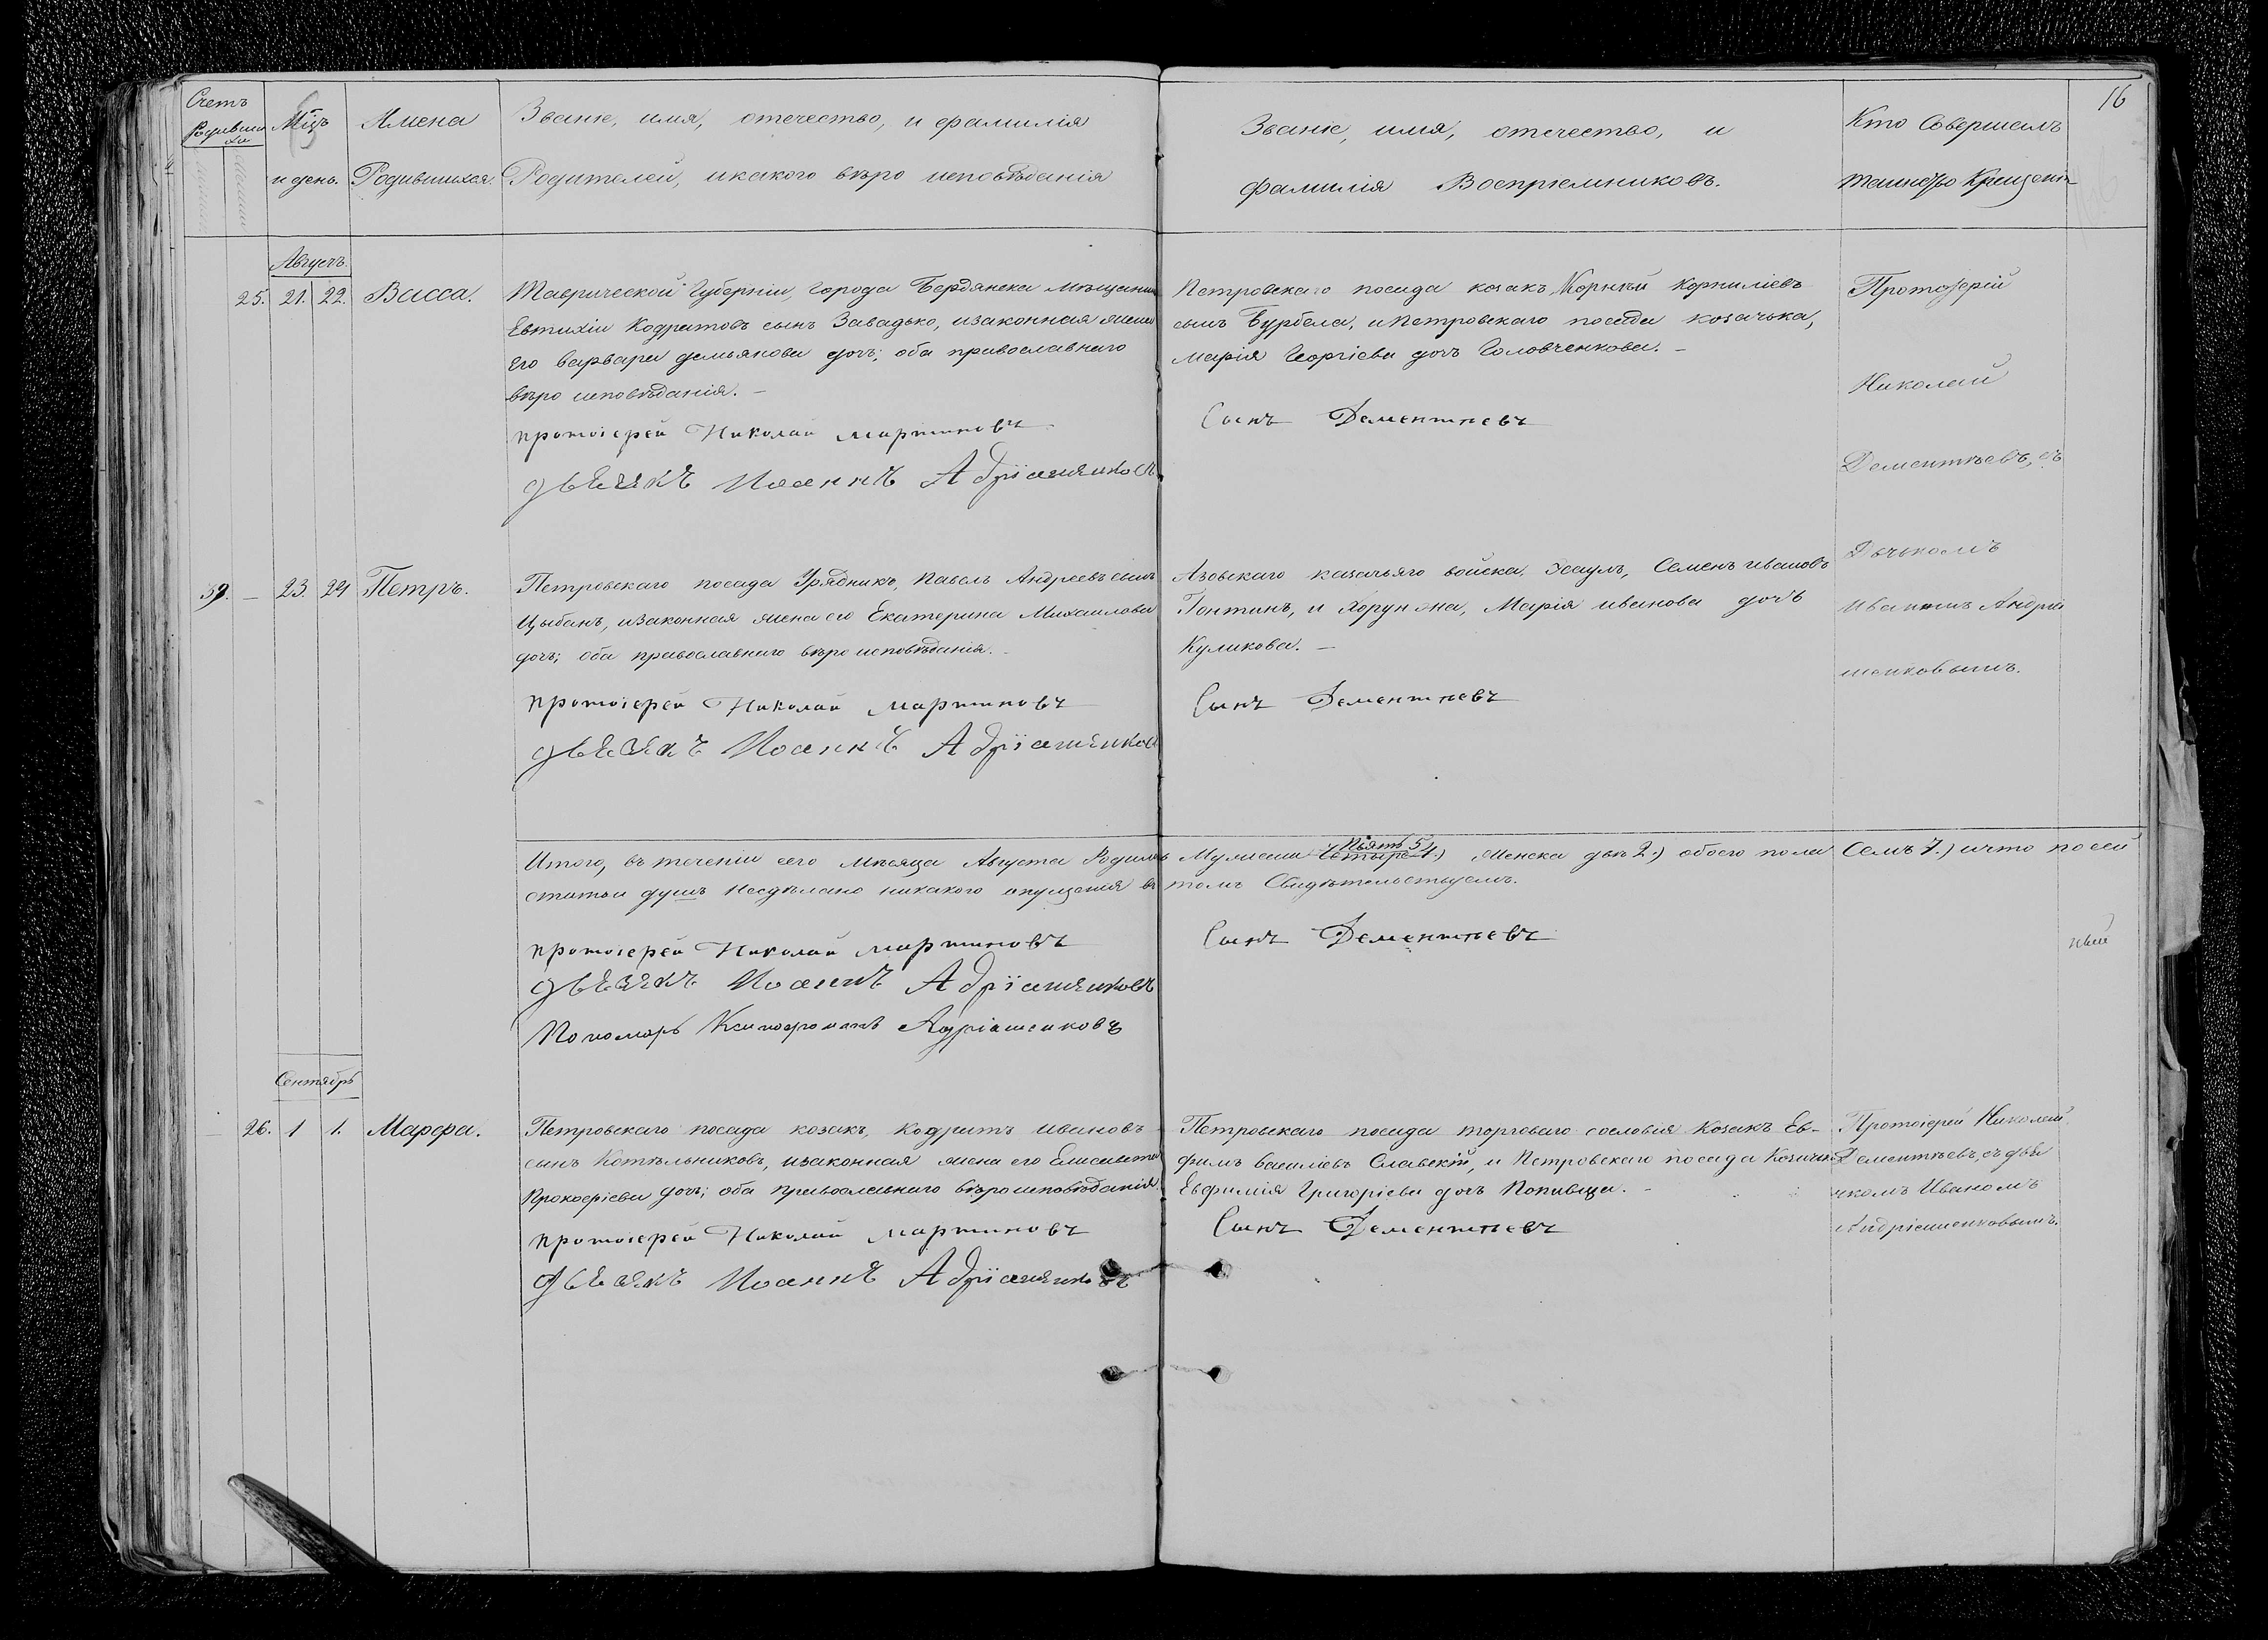 Счетъ
Родивши
хся
Мцъ
и день.
Имена
Родившихся.
Званіе, имя, отечество, и фамилія
Родителей, икакого вѣро исповѣданія
Званіе, имя, отечество, и
фамилія Воспріемниковъ.
Кто Совершалъ
таинство Крещенія
16
Августъ.
25. 21. 22. Васса.
Таврической Губерніи, города Бердянска мѣщанинъ
Евтихіи Кодратовъ сынъ Завадько, изаконная жена
Его варвара демьянова дочь; оба православнаго
вѣро исповѣданія. –
протоіерей Николай мартиновъ
дьячекъ Иоаннъ Адріашенковъ
Петровскаго посада козакъ, Корнѣй Корниліевъ
сынъ Бурбела, иПетровскаго посада козачька,
Марія Георгіева дочь Головченкова. –
Сынъ Дементьевъ
Протоіерій
Николай
Дементьевъ, съ
Дьячкомъ
Иваномъ Андріа
шенковымъ.
39. – 23. 24 Петръ.
Петровскаго посада Урядникъ, Павелъ Андреевъ сынъ
Цыбань, изаконная жена его Екатерина Михаилова
дочь; оба православнаго вѣро исповѣданія. –
протоіерей Николай мартиновъ
дьячекъ Иоаннъ Адріашенковъ
Азовскаго казачьяго войска, Эсаулъ, Семенъ ивановъ
Гонтинъ, и Хорунжна, Марія иванова дочь
Куликова. –
Сынъ Дементьевъ
Итого, въ теченіи сего мѣсяца Августа Родилось Мужеска Четыре 4.) женска двѣ 2.) обоего пола Семъ 7.) ичто посей
Пьять 5
статьи душъ Несдѣлано никакого опущенія въ томъ Свидѣтельствуемъ.
протоіерей Николай мартиновъ
Сынъ Дементьевъ
дьячекъ Иоаннъ Адріашенковъ
Пономарь Ксенофонтъ Адріашенковъ
Сентябрь
26. 1 1. Марфа.
Петровскаго посада козакъ, кодратъ ивановъ
сынъ Котѣльниковъ, изаконная жена его Елисавета
Прокофіева дочь; оба православнаго вѣроисповѣданія.
протоіерей Николай мартиновъ
дьячекъ Иоаннъ Адріашенковъ
Петровскаго посада торговаго сословія козакъ Ев-
фимъ василіевъ Славскій, и Петровскаго посада Козачка
Евфимія Григоріева дочь Попивща. –
Сынъ Дементьевъ
Протоіерей Николай
Дементьевъ, съ дья
чкомъ Иваномъ
Андріашенковымъ.